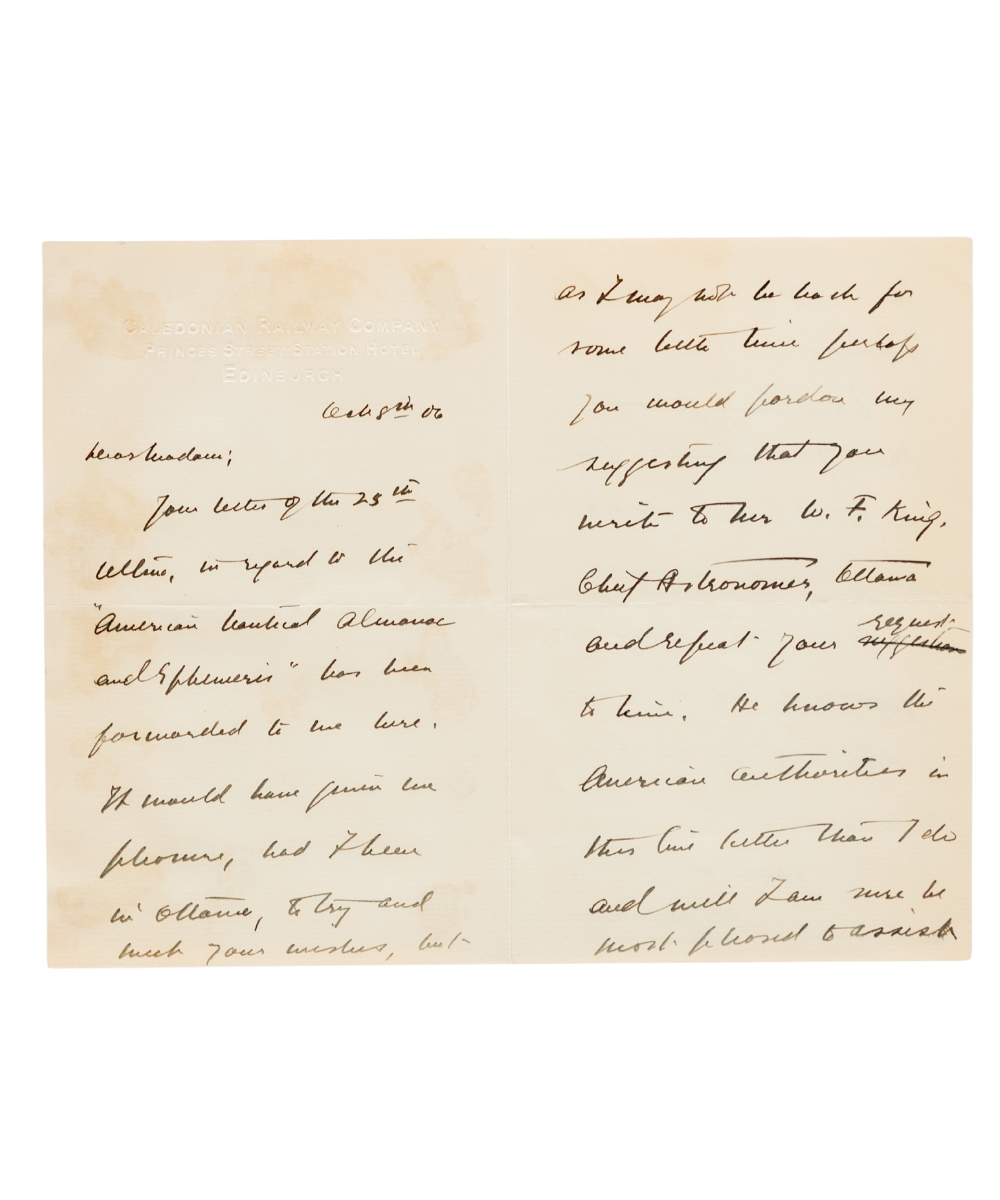 CALEDONIAN RAILWAY COMPANY
PRINCES STREET STATION HOTEL
EDINBURGH
Oct 8th 06
Dear Madam;
Your letter of the 25th
ultimo, in regard to the
"American Nautical Almanac
and Ephemeris" has been
forwarded to me here.
It would have given me
pleasure, had I been
in Ottawa, to try and
meet your wishes, but
as I may not be back for
some little time perhaps
you would pardon my
suggesting that you
write to Mr W. F. King,
Chief Astronomer, Ottawa
and repeat your suggestion request
to him. He knows the
American authorities in
this line better than I do
and will I am sure be
most pleased to assist